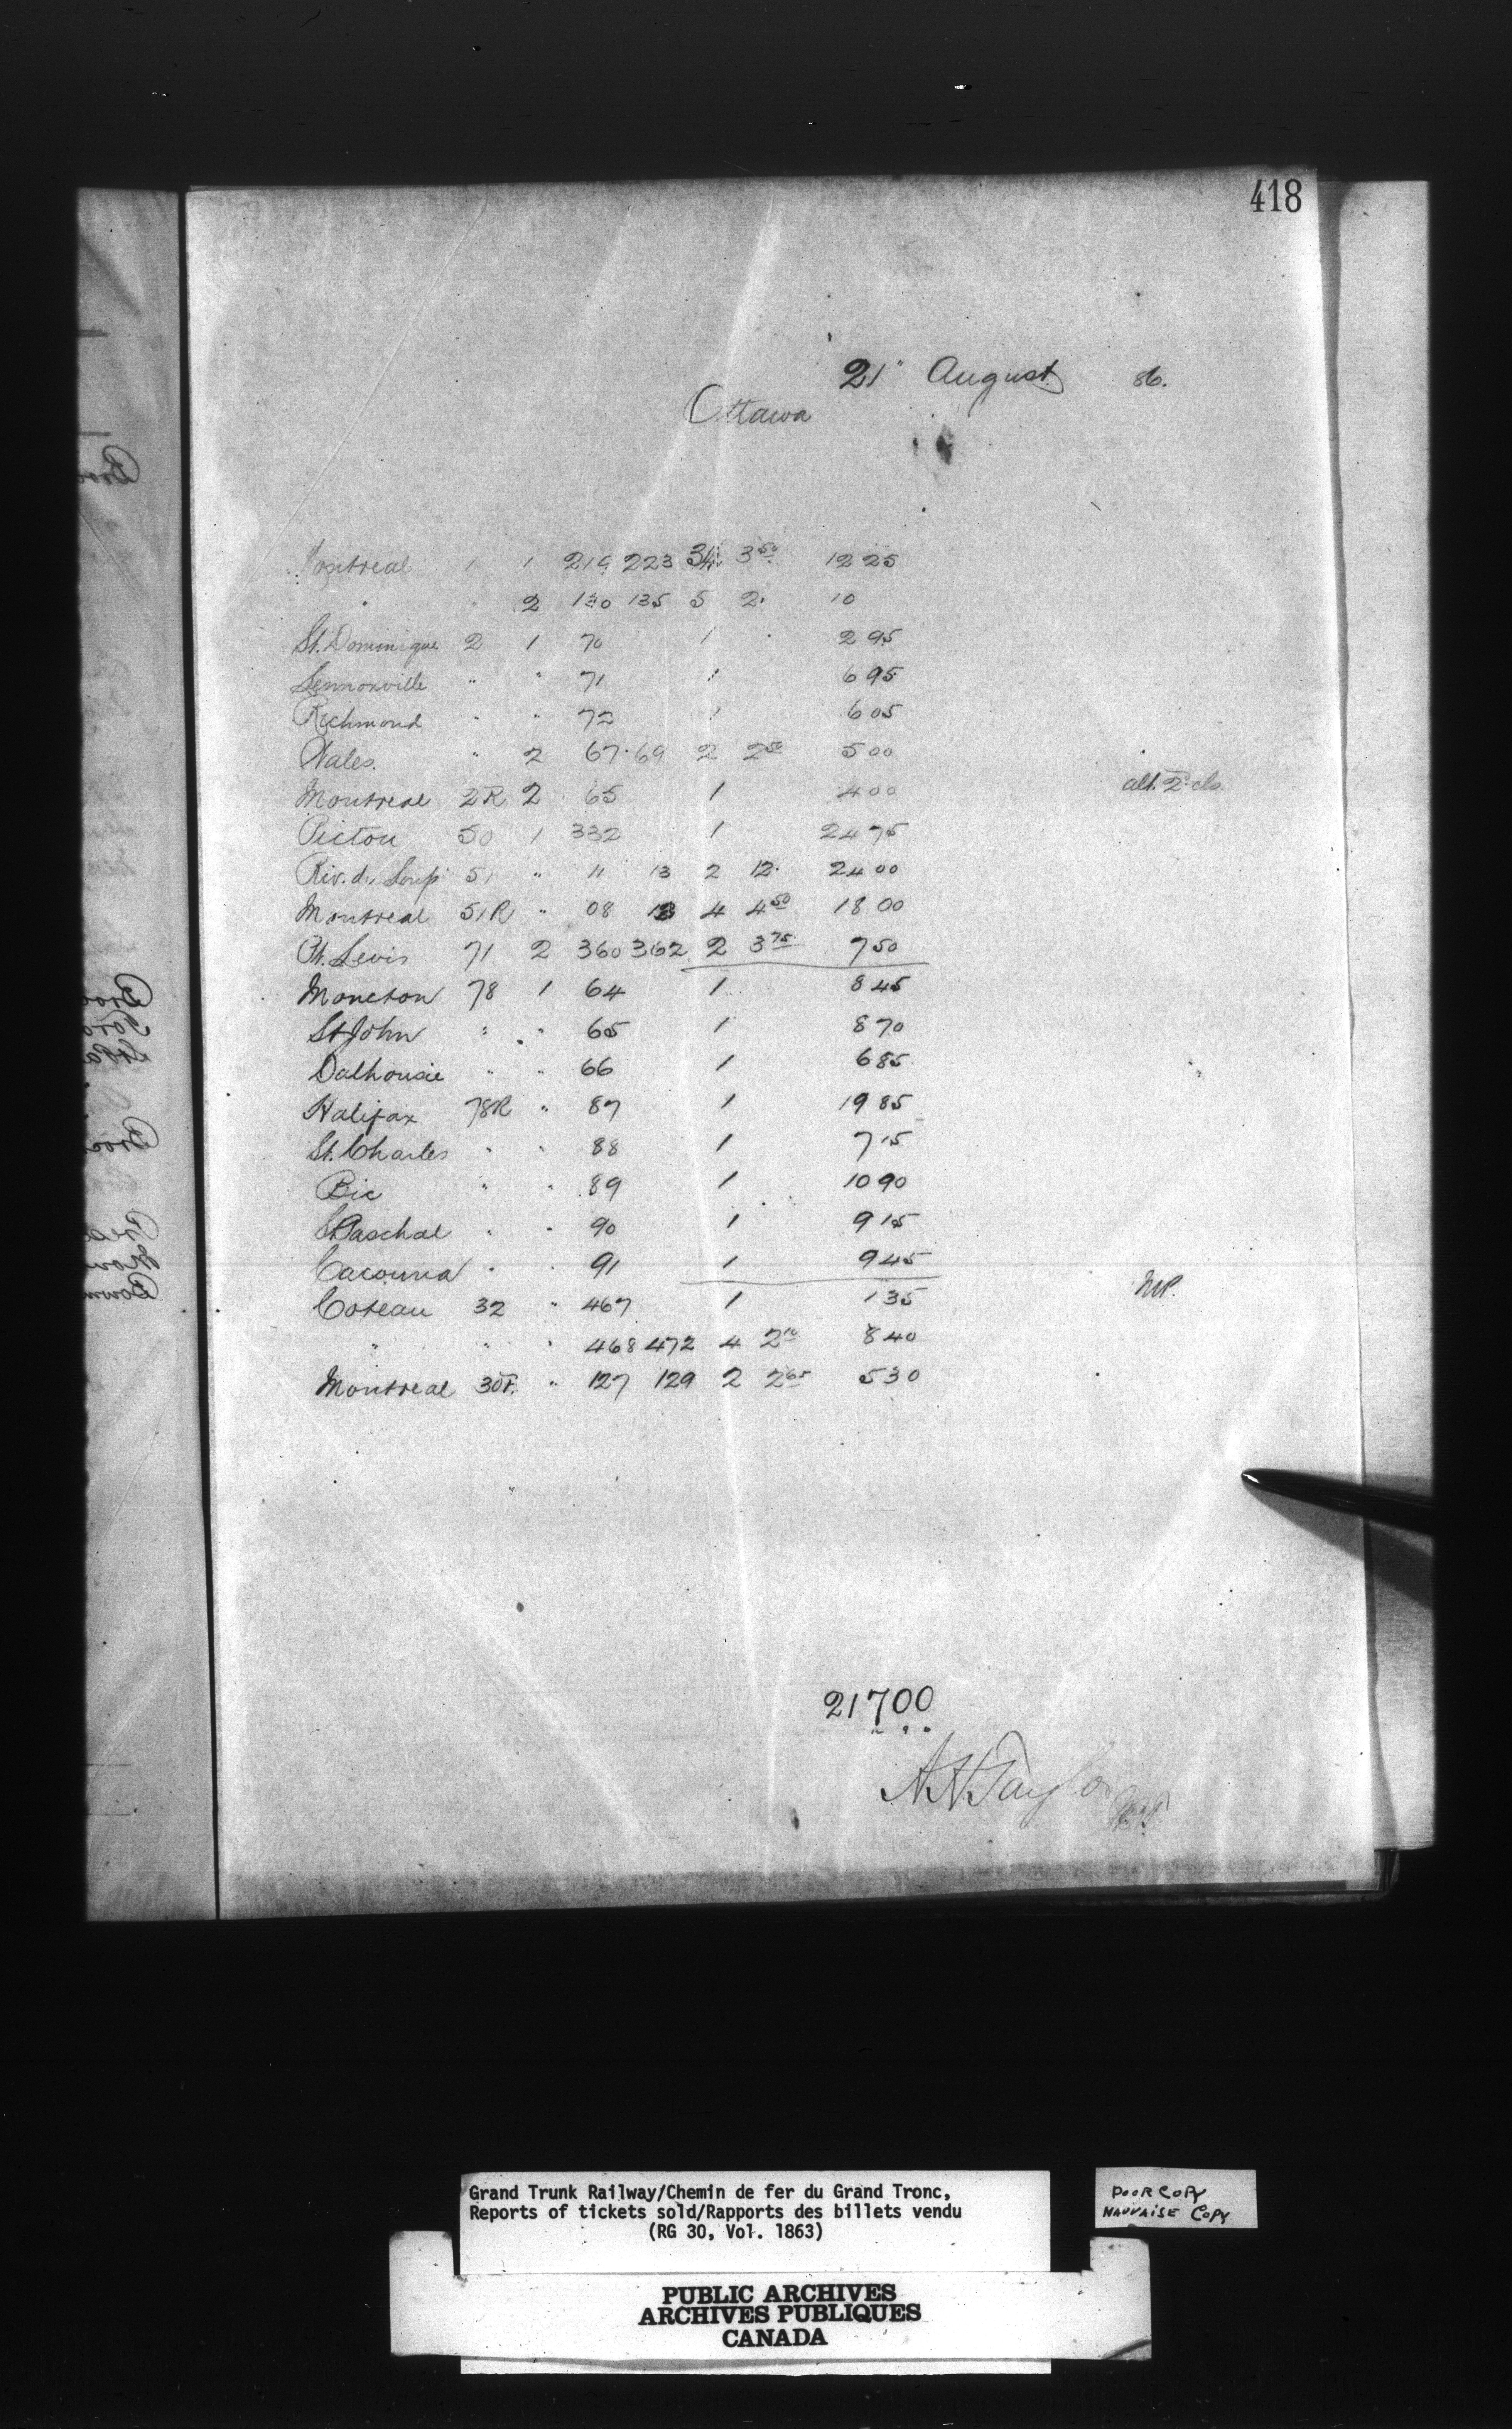 418
21" August 86.
Ottawa
Montreal 1 1 219 223 3½ 3 50 12 25
" " 2 130 135 5 2. 10
St. Dominique 2 1 70 1 2 95
Lennoxville " " 71 1 6 95
Richmond " " 72 1 6 05
Wales. " 2 67.69 2 2 50 5 00
Montreal 2R 2 65 1 4 00 alt. 2 cls.
Pictou 50 1 332 1 24 75
Riv. du Loup 51 " 11 13 2 12. 24 00
Montreal 51R " 08 12 4 4 50 18 00
Pt. Levis 71 2 360 362 2 3 75 7 50
Moncton 78 1 64 1 8 45
St John " " 65 1 8 70
Dalhousie " " 66 1 6 85
Halifax 78R " 87 1 19 85
St. Charles " " 88 1 7 15
Bic " " 89 1 10 90
St Paschal " " 90 1 9 15
Cacouna " " 91 1 9 45
Coteau 32 " 467 1 1 35
" " " 468 472 4 2 10 8 40
Montreal 30F. " 127 129 2 2 65 5 30
21700
Taylor
Grand Trunk Railway/Chemin de fer du Grand Tronc,
Reports of tickets sold/Rapports des billets vendu
(RG 30, Vol. 1863)
POOR COPY
MAUVAISE COPY
PUBLIC ARCHIVES
ARCHIVES PUBLIQUES
CANADA